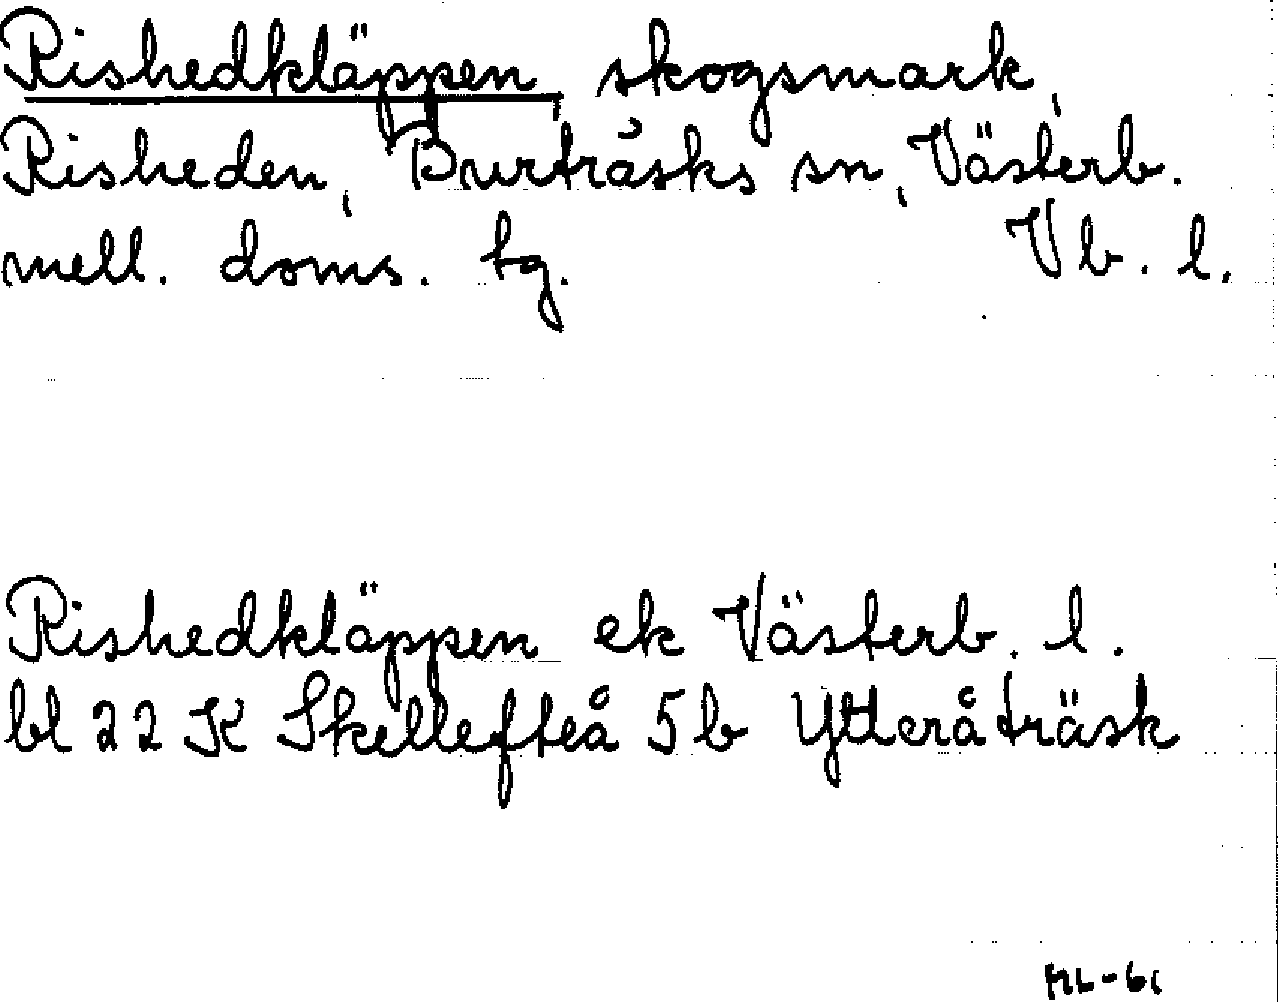 Rishedkläppen, skogsmark,
Risheden, Burträsks sn, Västerb.
mell. doms. tg. Vb. l.
Rishedkläppen ek Västerb. l.
bl 22 K Skellefteå 5b Ytteråträsk
ML-61